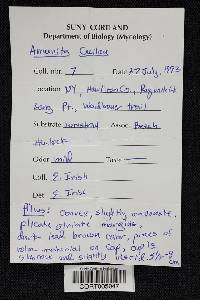 SUNY CORTLAND
Department of Biology (Mycology)
Amanita Ceciliae
Coll. nbr. 7 Date 27 July, 1992
Location NY, Hamilton Co., Raquette Lk
Pt., Woodhouse trail
Substrate terrestrial Assoc. Beech
Hemlock
Odor mild Taste
Coll. E. Irish
Det. E. Irish
Pileus: Convex, slightly umbonate,
plicate striate margin,
dark brown color, pieces of
volva material on cap,
and slightly
cm
CORT005047